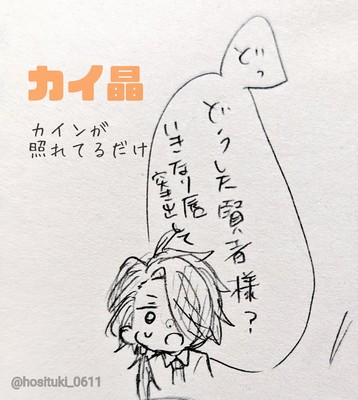 カイ晶
カインが
照れてるだけ
どっ
どうした賢者様？
いきなり唇
突出して
@hosituki_0611